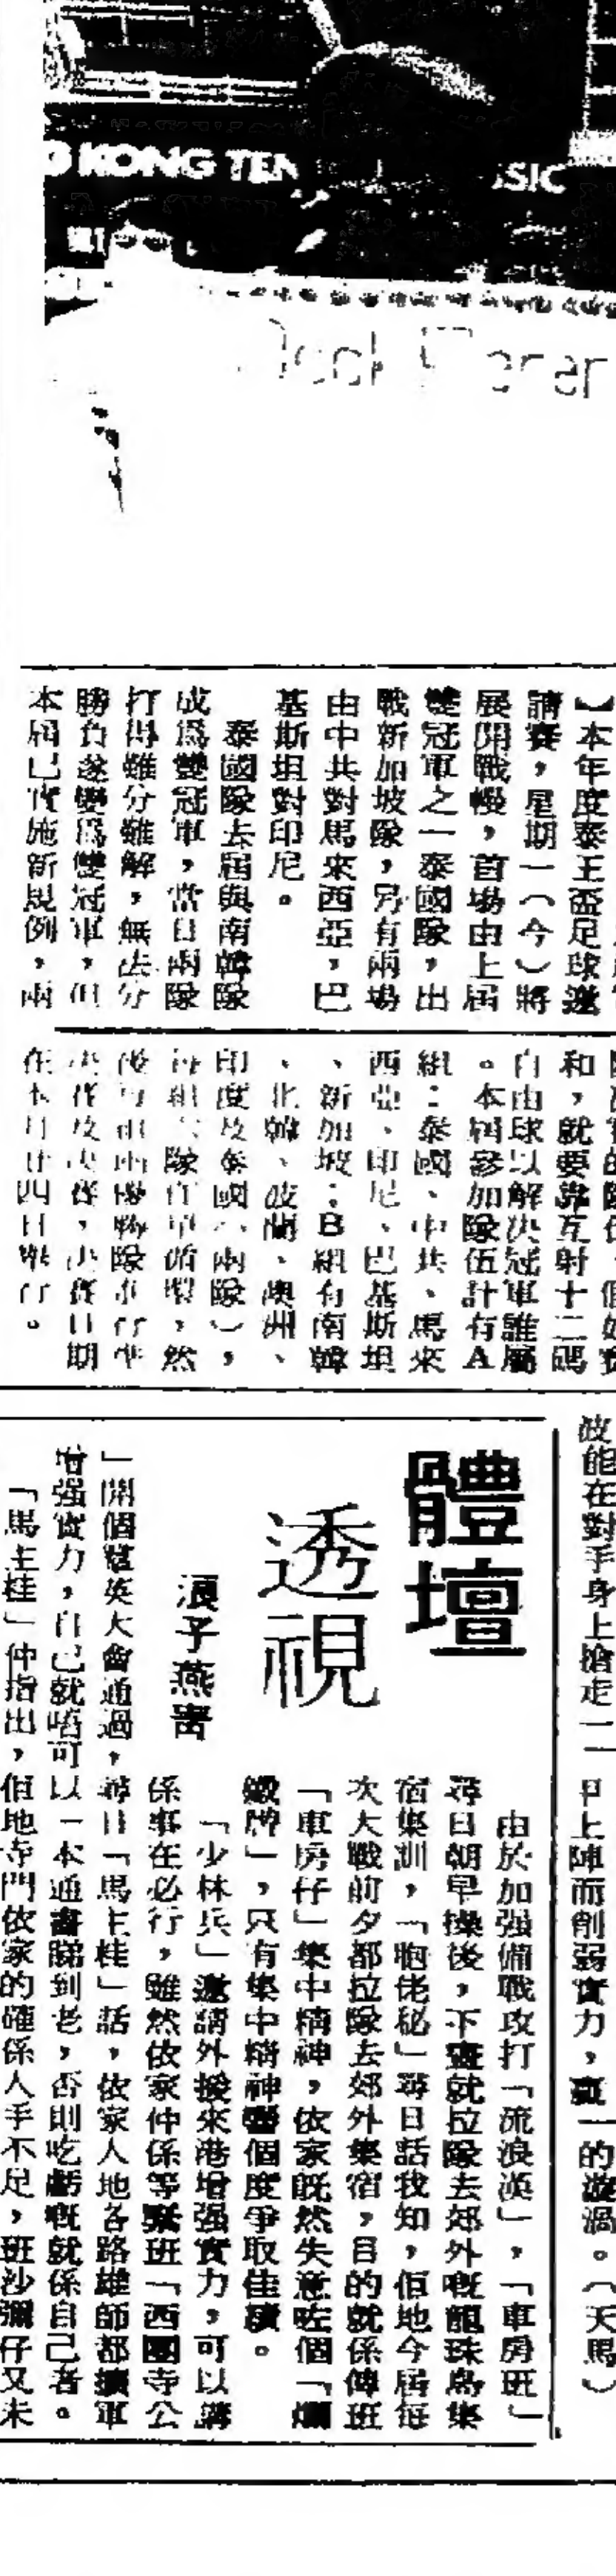 KONG TEN
SIC
】本年度泰王盃足球邀
請賽，星期一（今）將
展開戰幔，首場由上屆
雙冠軍之一泰國隊，出
戰新加坡隊，另有兩場
由中共對馬來西亞，巴
基斯坦對印尼。
泰國隊去屆與南韓隊
成爲雙冠軍，當日兩隊
打得難分難解，無法分
勝負遂變爲雙冠軍，但
本屆已實施新規例，兩
和，就要靠互射十二碼
自由球以解决冠軍誰屬
。本屆參加隊伍計有A
組：泰國、中共、馬來
西亞、印尼、巴基斯坦
、新加坡；B組有南韓
、北韓、波蘭、澳洲、
印度及泰國（兩隊），
每組六隊作單循環，然
後每組兩優勝隊進行準
决賽及决賽，决賽日期
在本月廿四日舉行。
波能在對手身上搶走一
日上陣而削弱實力，
的漩渦。（天馬）
體壇
透視
浪子燕青
由於加强備戰攻打「流浪漢」，「車房班」
尋日朝早操後，下晝就拉隊去郊外嘅龍珠島集
宿集訓，「咆佬秘」尋日話我知，佢地今屆每
次大戰前夕都拉隊去郊外集宿，目的就係俾班
「車房仔」集中精神，依家旣然失意咗個「爛
緞牌」，只有集中精神響個度爭取佳績。
「少林兵」邀請外援來港增强實力，可以講
係事在必行，雖然依家仲係等緊班「西園寺公
」開個羣英大會通過，尋日「馬主桂」話，依家人地各路雄師都擴軍
增强實力，自己就唔可以一本通書睇到老，否則吃虧嘅就係自己者。
「馬主桂」仲指出，佢地寺門依家的確係人手不足，班沙彌仔又未